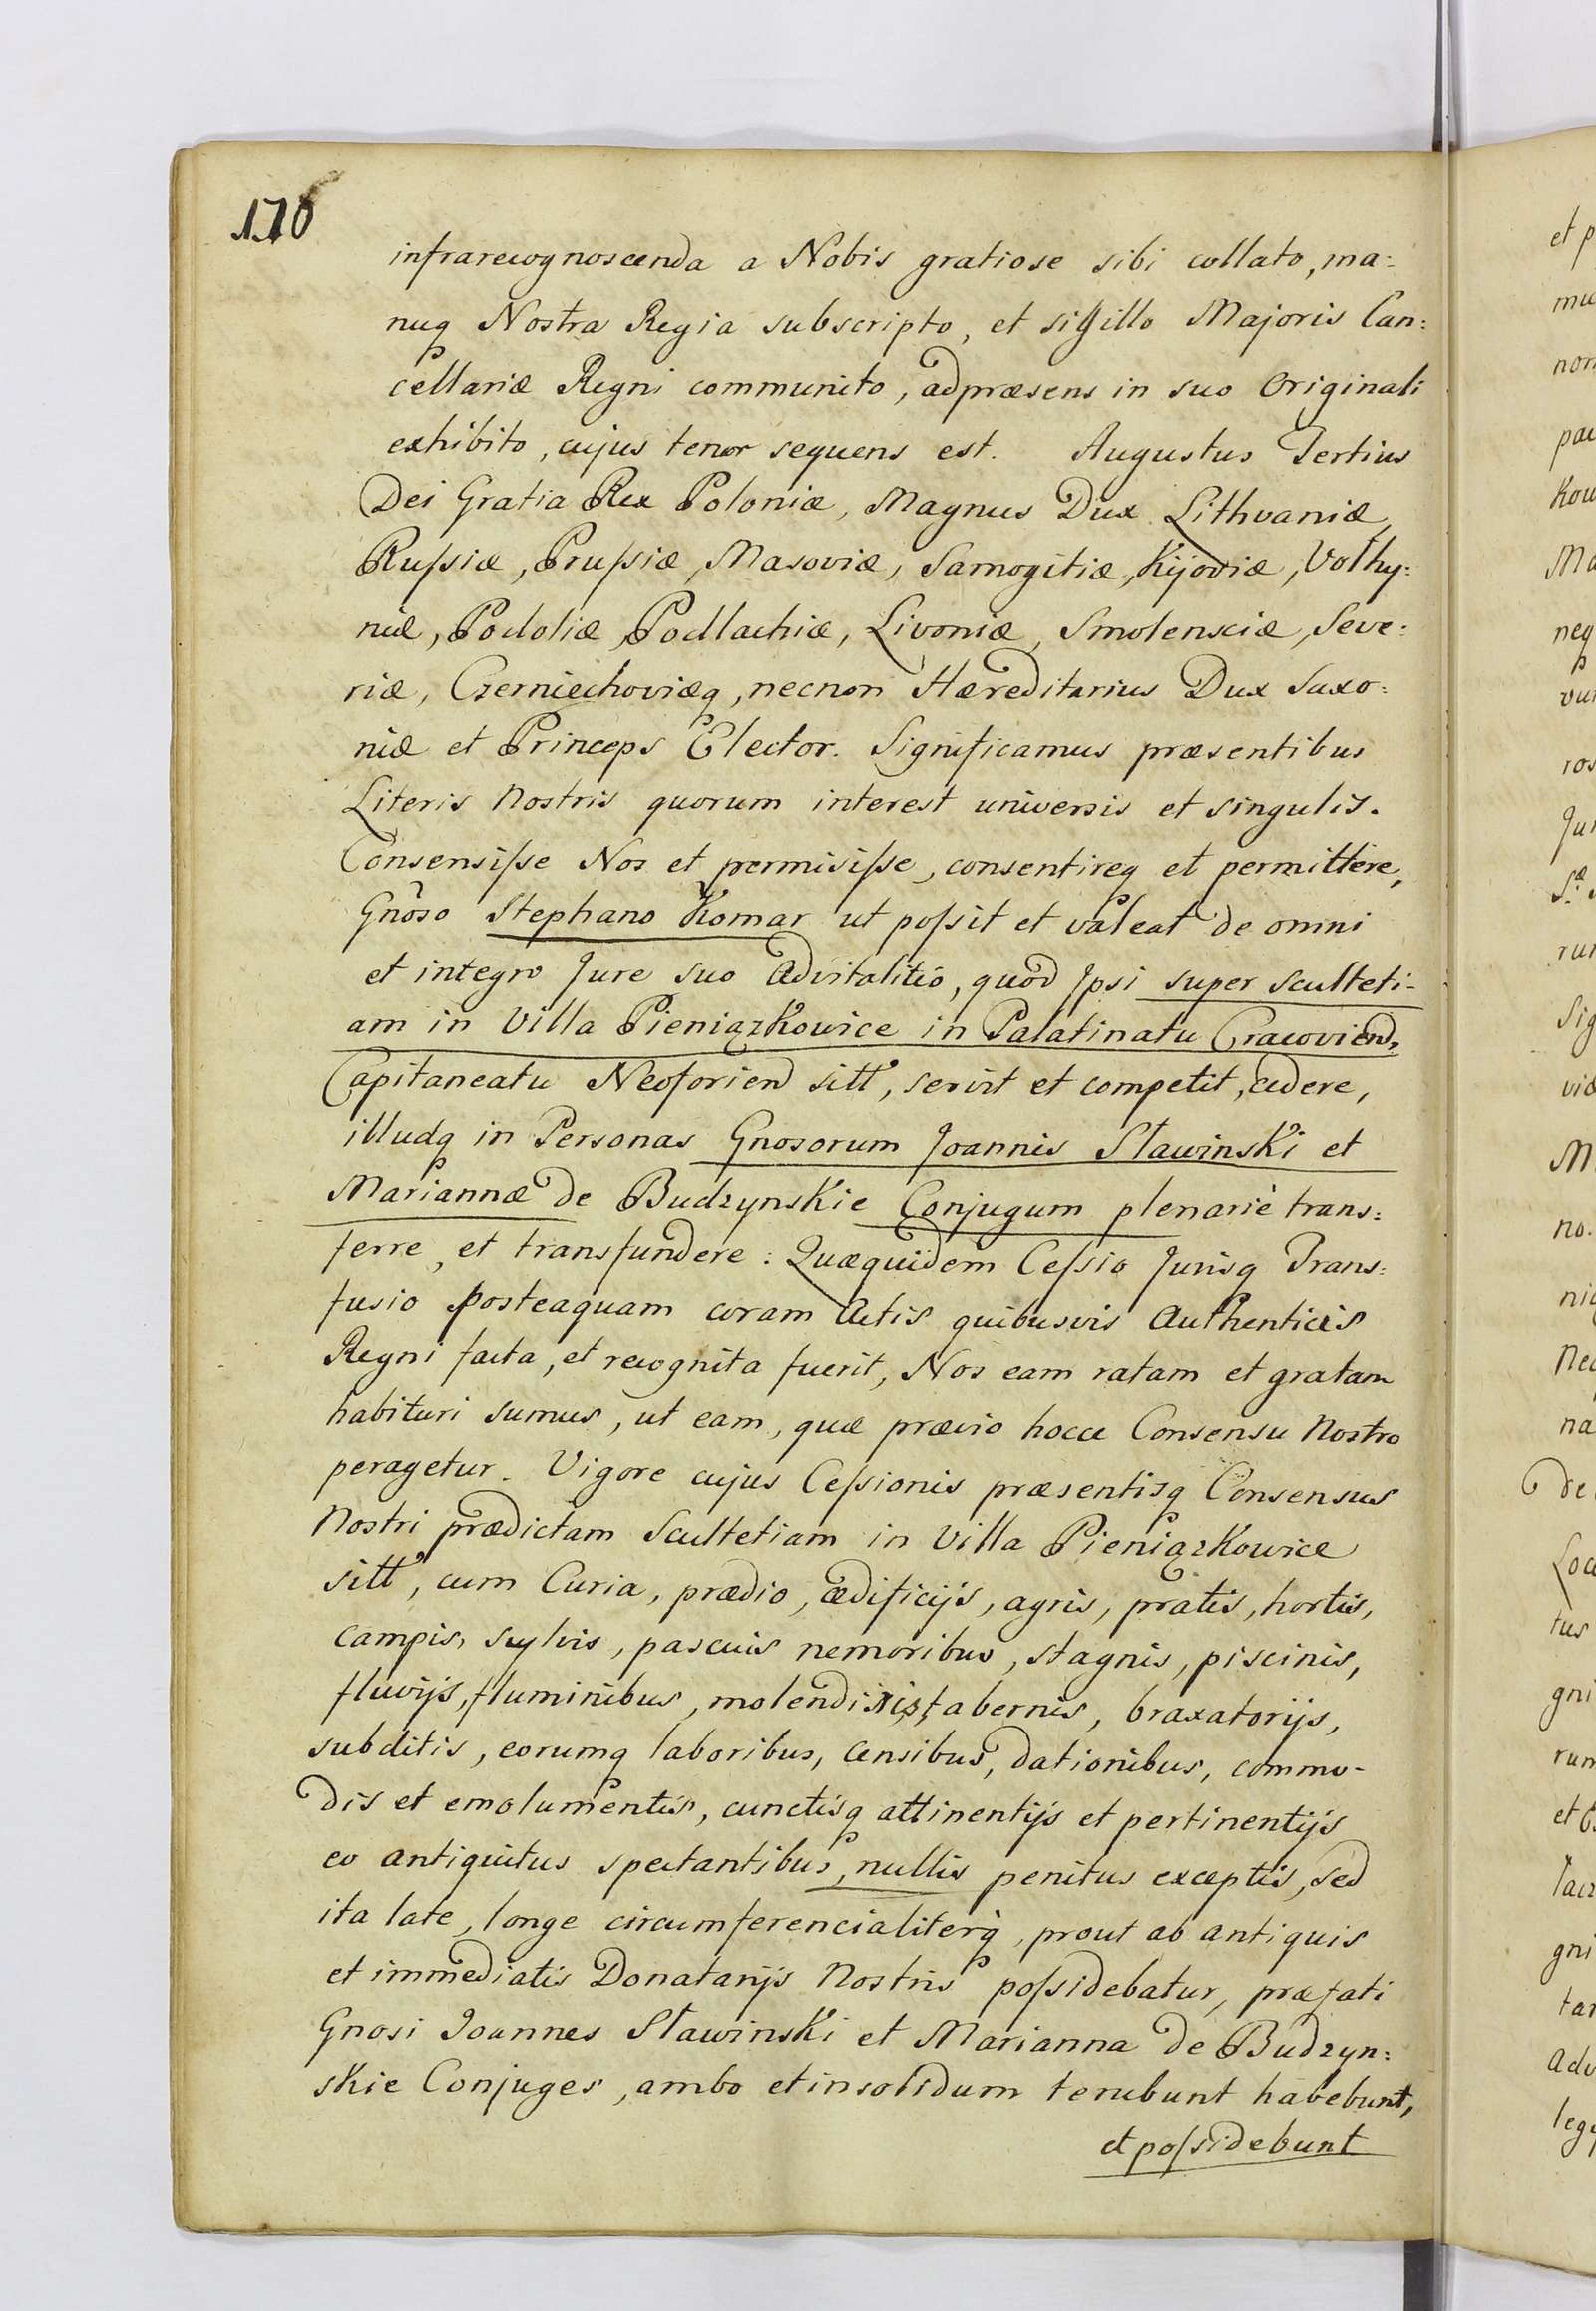 176
infrarecognoscenda a Nobis gratiose sibi collato, ma:
nuq Nostra Regia subscripto, et sigillo Majoris Can:
cellariæ Regni communito, adpræsens in suo Originali
exhibito, cujus tenor sequens est. Augustus Tertius
Dei Gratia Rex Poloniæ, Magnus Dux Lithvaniæ,
Rufsiæ, Prufsiæ, Masoviæ, Samogitiæ, Kijoviæ, Volhy:
niæ, Podoliæ, Podlachiæ, Livoniæ, Smolensciæ, Seve:
riæ, Czerniechoviæq, necnon Hæreditarius Dux Saxo:
niæ et Princeps Elector. Significamus præsentibus
Literis Nostris quorum interest universis et singulis.
Consensifse Nos et permisifse, consentireq et permittere,
Gnõso Stephano Komar ut pofsit et valeat de omni
et integro Jure suo Advitalitio, quod Ipsi super Sculteti-
am in Villa Pieniązkowice in Palatinatu Cracoviend,
Capitaneatu Neoforiend sitt, servit et competit, cedere,
illudq in Personas Gnosorum Joannis Sławinski et
Mariannæ de Budzynskie Conjugum plenariè trans:
ferre, et transfundere: Quæquidem Cefsio Jurisq Trans:
fusio posteaquam coram Actis quibusvis Authenticis
Regni facta, et recognita fuerit, Nos eam ratam et gratam
habituri sumus, ut eam, quæ prævio hocce Consensu Nostro
peragetur. Vigore cujus Cefsionis præsentisq Consensus
Nostri prædictam Scultetiam in Villa Pieniązkowice
sitt, cum Curia, prædio, ædificijs, agris, pratis, hortis,
campis, sylvis, pascuis nemoribus, stagnis, piscinis,
fluvijs, fluminibus, molendinis, tabernis, braxatorijs,
subditis, eorumq laboribus, censibus, dationibus, commo-
dis et emolumentis, cunctisq attinentijs et pertinentijs
eo antiquitus spectantibus, nullis penitus exceptis, sed
ita late, longe circumferencialiterq, prout ab antiquis
et immediatis Donatarijs Nostris pofsidebatur, præfati
Gnosi Joannes Sławinski et Marianna de Budzyn:
skie Conjuges, ambo et insolidum tenebunt habebunt,
et pofsidebunt